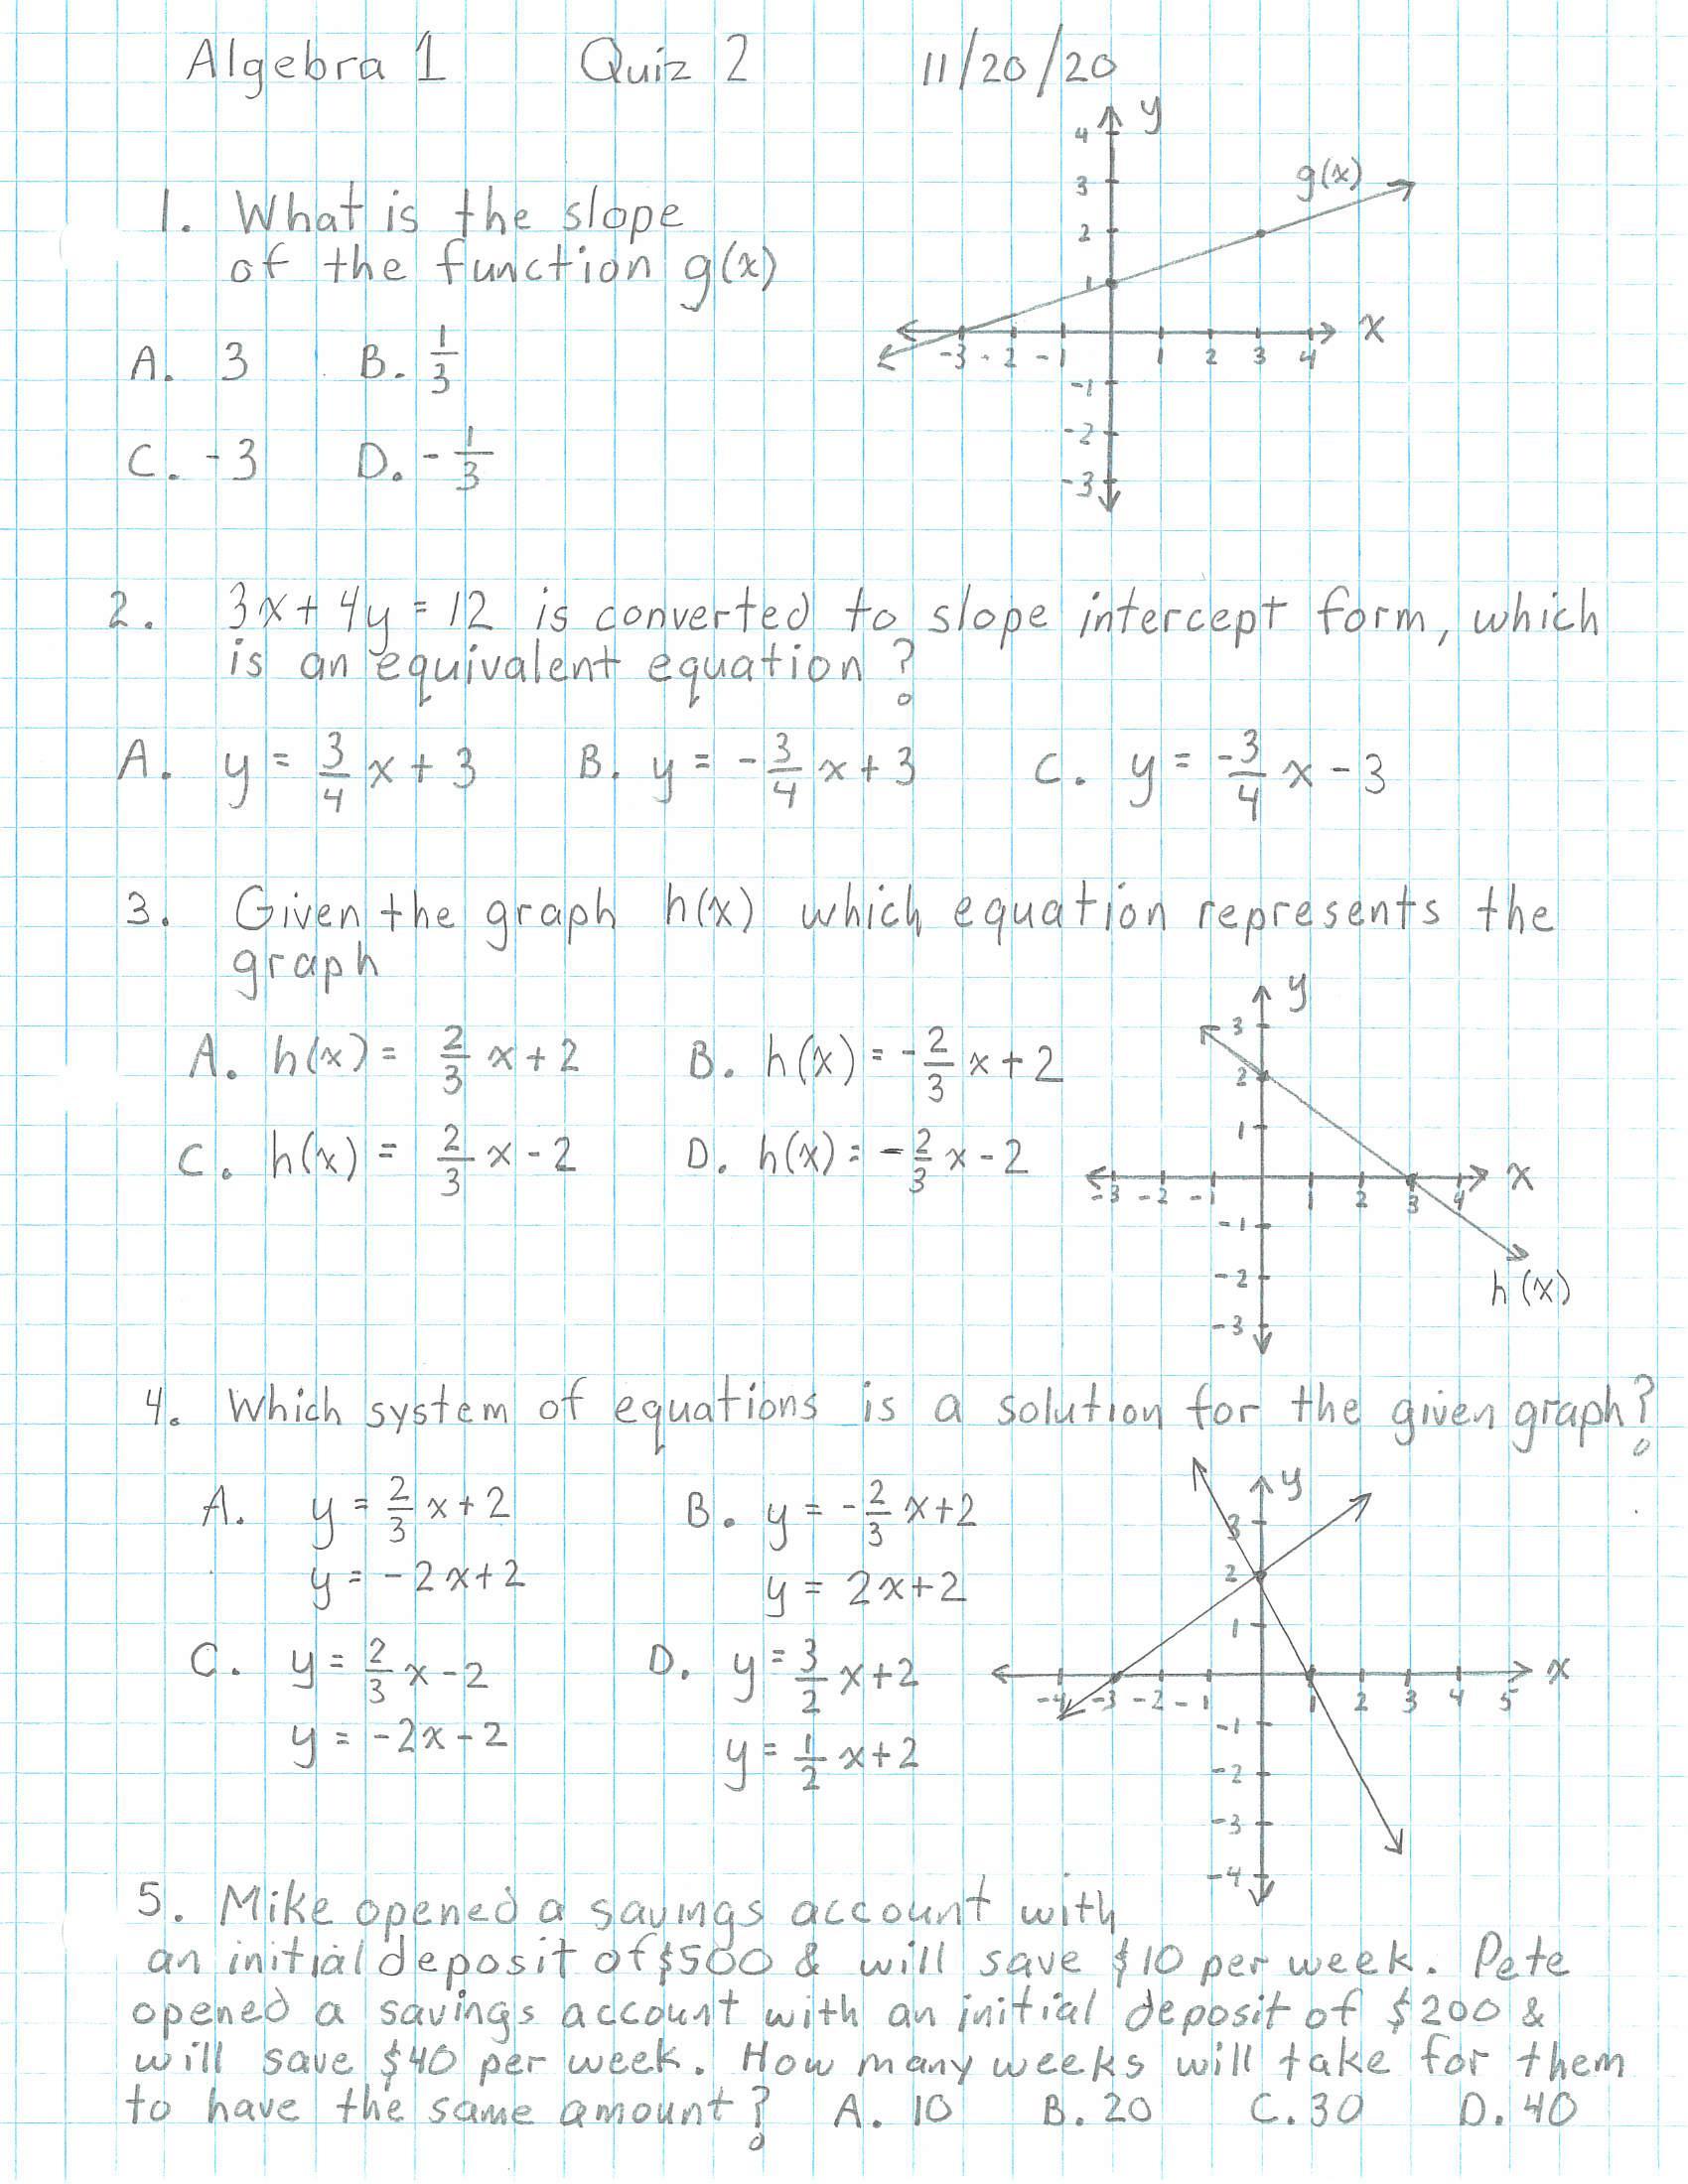 Algebra 1 Quiz 2 11/20/20
y
4
3
2
1
g(x)
x
-3 -2 -1 1 2 3 4
-1
-2
-3
1. What is the slope
of the function g(x)
A. 3 B. 1/3
C. -3 D. -1/3
2. 3x+4y=12 is converted to slope intercept form, which
is an equivalent equation?
A. y = 3/4 x + 3 B. y = -3/4 x + 3 C. y = -3/4 x - 3
3. Given the graph h(x) which equation represents the
graph
A. h(x) = 2/3 x + 2 B. h(x) = -2/3 x + 2
C. h(x) = 2/3 x - 2 D. h(x) = -2/3 x - 2
y
3
2
1
x
-3 -2 -1 1 2 3 4
-1
-2
-3
h(x)
4. Which system of equations is a solution for the given graph?
A. y = 2/3 x + 2 B. y = -2/3 x + 2
y = -2x+2 y = 2x+2
C. y = 2/3 x - 2 D. y = 3/2 x + 2
y = -2x-2 y = 1/2 x + 2
y
3
2
1
x
-4 -3 -2 -1 1 2 3 4 5
-1
-2
-3
-4
5. Mike opened a savings account with
an initial deposit of $500 & will save $10 per week. Pete
opened a savings account with an initial deposit of $200 &
will save $40 per week. How many weeks will take for them
to have the same amount? A. 10 B. 20 C. 30 D. 40